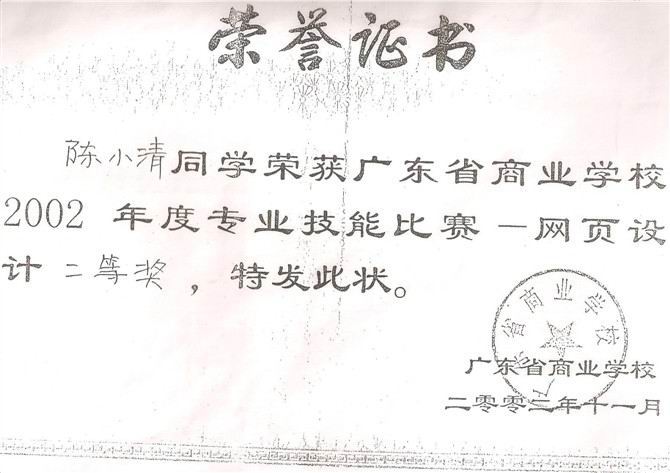 荣誉证书
陈小清同学荣获广东省商业学校
2002 年度专业技能比赛－网页设
计二等奖，特发此状。
广东省商业学校
广东省商业学校
二零零二年十一月